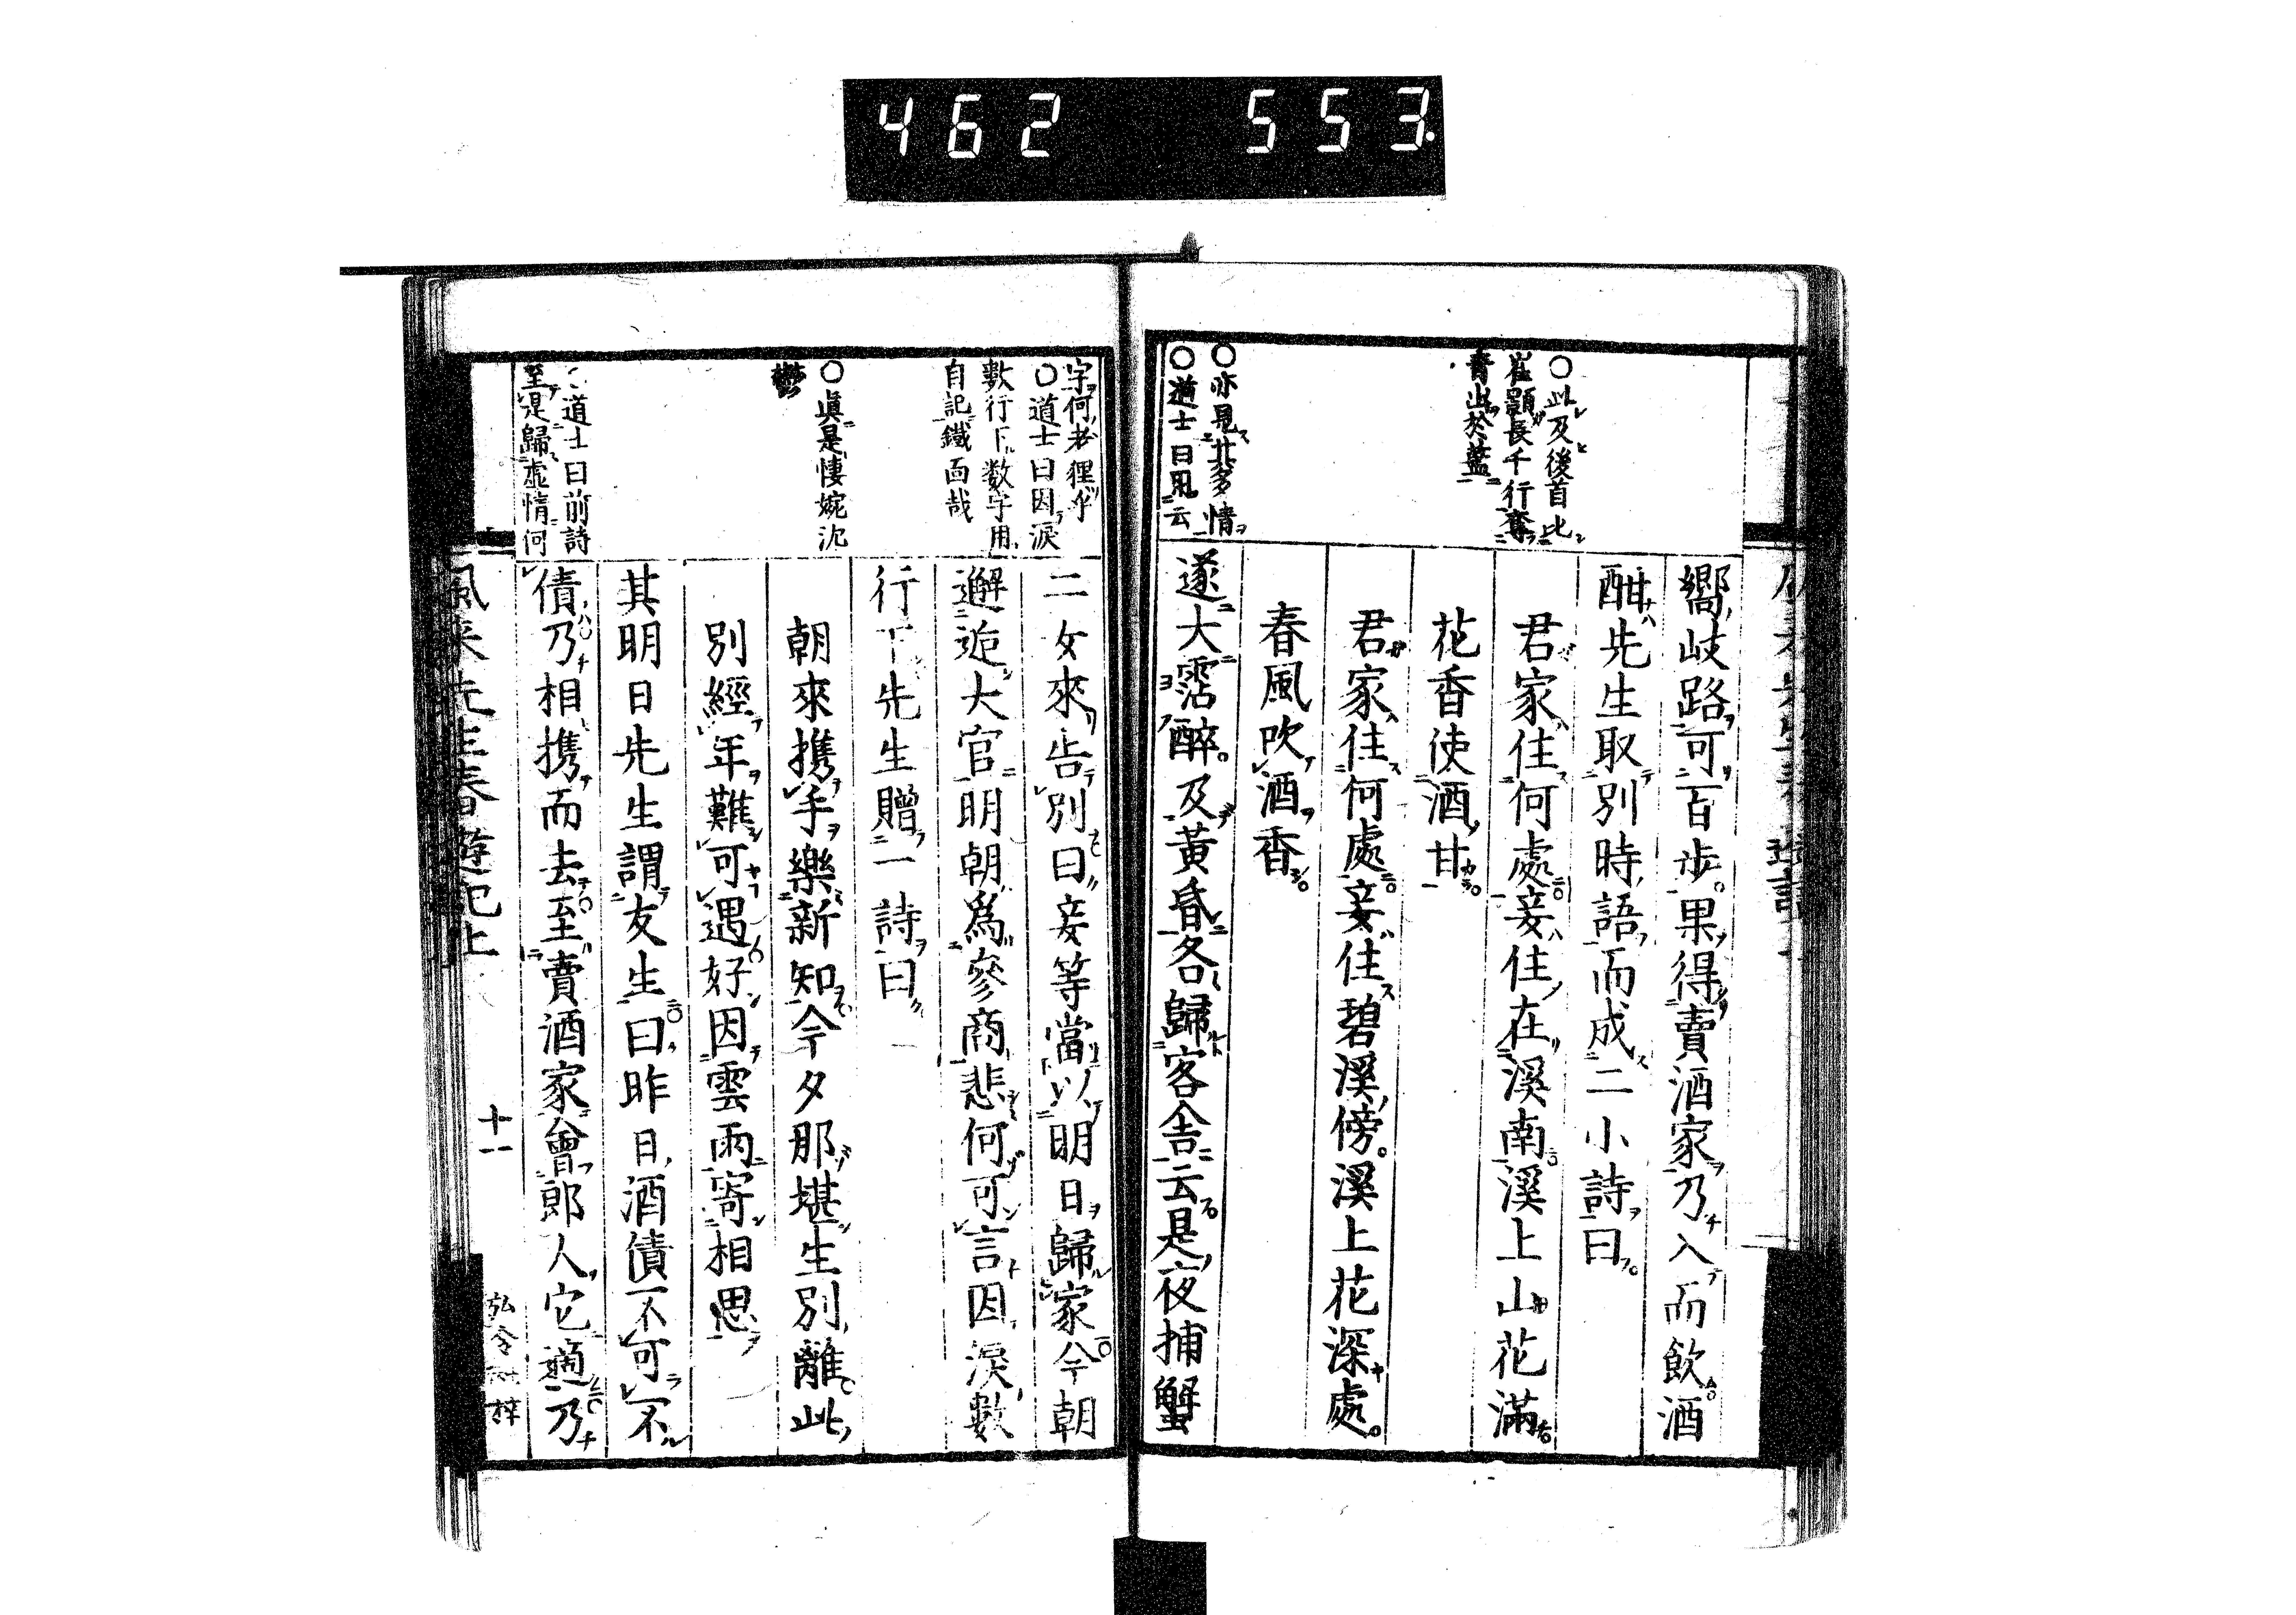 462 553
○此及後首比
崔顥長千行奪
青出於藍
○亦見北多情
○道士曰用云
嚮岐路可二百步果得賣酒家乃入而飲酒
酣先生取別時語而成二小詩曰
君家住何處妾住在溪南溪上山花滿
花香使酒甘
君家住何處妾住碧溪傍溪上花深處
春風吹酒香
遂大霑醉及黃昏各歸客舍云是夜捕蟹
字何老狸乎
○道士曰因淚
數行下数字用
自記鐵面哉
○眞是悽婉沈
鬱
道士曰前詩
至是歸虛情何
二女來告別曰妾等當以明日歸家今朝
邂逅大官明朝爲參商悲何可言因淚數
行下先生贈一詩曰
朝來携手樂新知今夕那堪生別離此
別經年難可遇好因雲雨寄相思
其明日先生謂友生曰昨日酒債不可不
債乃相携而去至賣酒家會郎人它適乃
風來先生春遊記上
十一